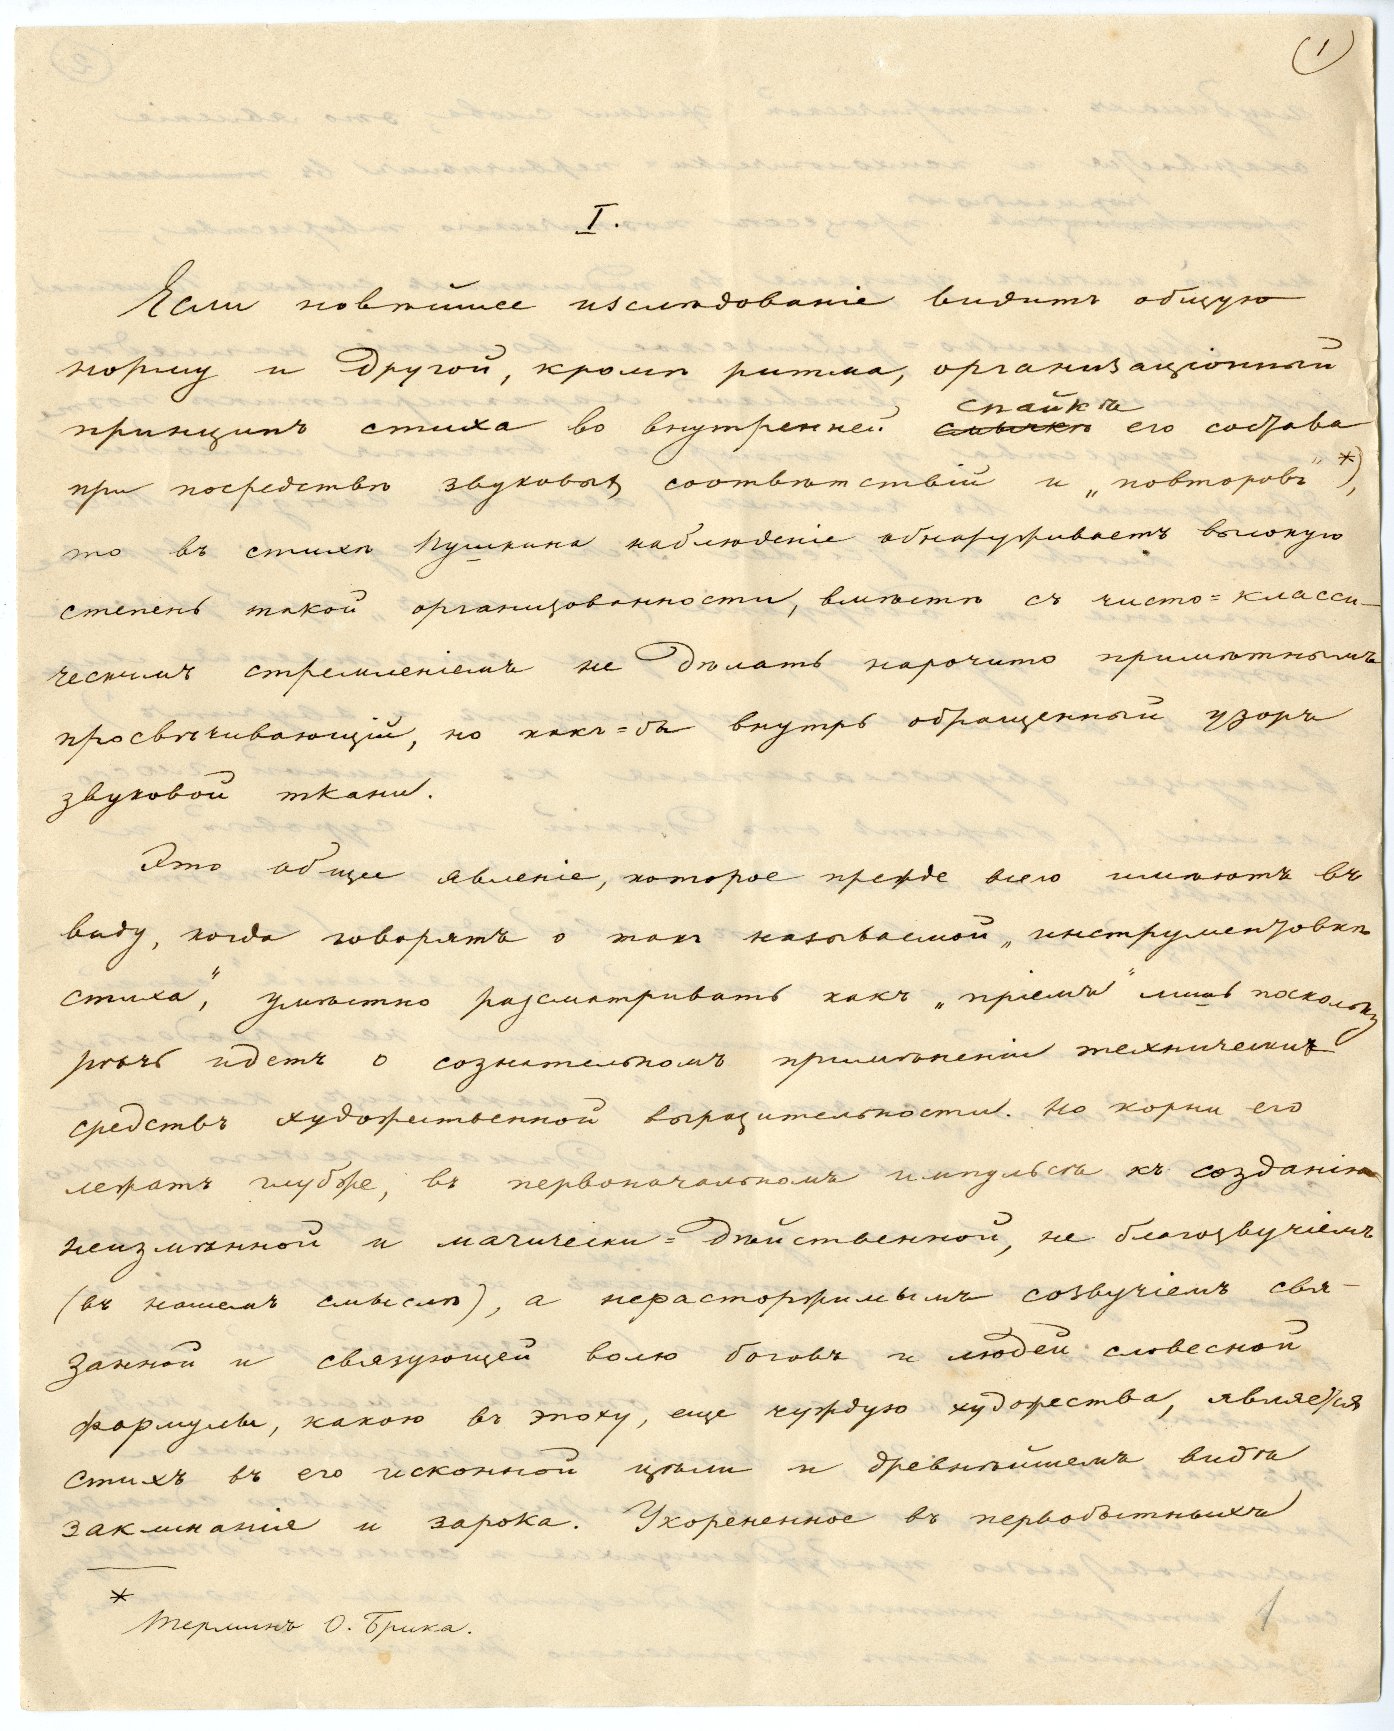 (1)
I.
Если новѣйшее изслѣдованіе видитъ общую
норму и другой, кромѣ ритма, организаціонный
спайкѣ
принципъ стиха во внутренней смычкѣ его состава
при посредствѣ звуковыхъ соотвѣтствій и „повторовъ" *),
то въ стихѣ Пушкина наблюденіе обнаруживаетъ высокую
степень такой организованности, вмѣстѣ съ чисто=класси-
ческимъ стремленіемъ не дѣлать нарочито примѣтнымъ
просвѣчивающій, но какъ=бы внутрь обращенный узоръ
звуковой ткани.
Это общее явленіе, которое прежде всего имѣютъ въ
виду, когда говорятъ о такъ называемой „инструментовкѣ
стиха", умѣстно разсматривать какъ „пріемъ" лишь поскольку
рѣчь идетъ о сознательномъ примѣненіи техническихъ
средствъ художественной выразительности. Но корни его
лежатъ глубже, въ первоначальномъ импульсѣ къ созданію
неизмѣнной и магически=дѣйственной, не благозвучіемъ
(въ нашемъ смыслѣ), а нерасторжимымъ созвучіемъ свя-
занной и связующей волю боговъ и людей словесной
формулы, какою въ эпоху, еще чуждую художества, является
стихъ въ его исконной цѣли и древнѣйшемъ видѣ
заклинанія и зарока. Укорененное въ первобытныхъ
* Терминъ О. Брика.
1